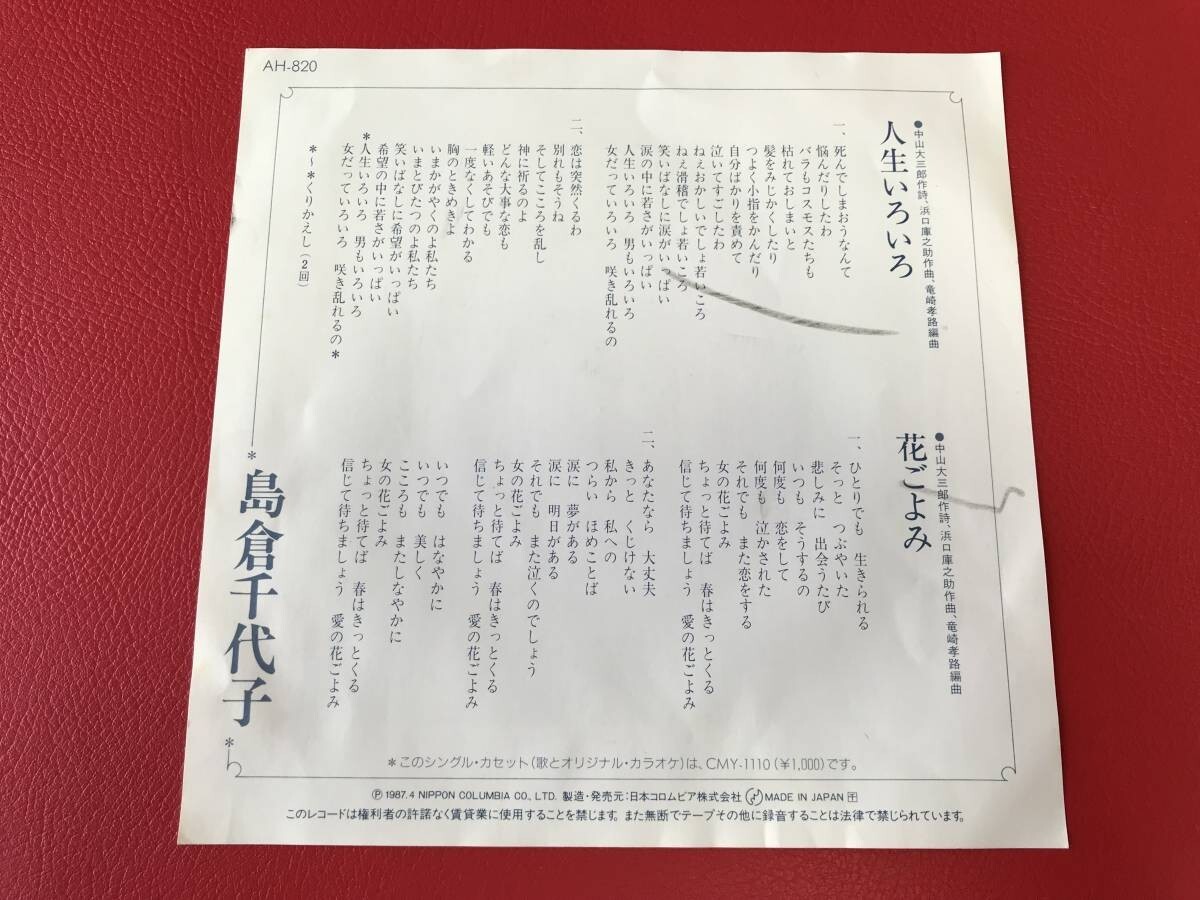 AH-820
人生いろいろ
●中山大三郎作詩、浜口庫之助作曲、竜崎孝路編曲
一、死んでしまおうなんて
悩んだりしたわ
バラもコスモスたちも
枯れておしまいと
髪をみじかくしたり
つよく小指をかんだり
自分ばかりを責めて
泣いてすごしたわ
ねぇおかしいでしょ若いころ
ねぇ滑稽でしょ若いころ
笑いばなしに涙がいっぱい
涙の中に若さがいっぱい
人生いろいろ 男もいろいろ
女だっていろいろ 咲き乱れるの
二、恋は突然くるわ
別れもそうね
そしてこころを乱し
神に祈るのよ
どんな大事な恋も
軽いあそびでも
一度なくしてわかる
胸のときめきよ
いまかがやくのよ私たち
いまとびたつのよ私たち
笑いばなしに希望がいっぱい
希望の中に若さがいっぱい
*人生いろいろ 男もいろいろ
女だっていろいろ 咲き乱れるの*
*~*くりかえし(2回)
花ごよみ
●中山大三郎作詩、浜口庫之助作曲、竜崎孝路編曲
一、ひとりでも 生きられる
そっと つぶやいた
悲しみに 出会うたび
いつも そうするの
何度も 恋をして
何度も 泣かされた
それでも また恋をする
女の花ごよみ
ちょっと待てば 春はきっとくる
信じて待ちましょう 愛の花ごよみ
二、あなたなら 大丈夫
きっと くじけない
私から 私への
つらい ほめことば
涙に 夢がある
涙に 明日がある
それでも また泣くのでしょう
女の花ごよみ
ちょっと待てば 春はきっとくる
信じて待ちましょう 愛の花ごよみ
いつでも はなやかに
いつでも 美しく
こころも またしなやかに
女の花ごよみ
ちょっと待てば 春はきっとくる
信じて待ちましょう 愛の花ごよみ
*島倉千代子*
*このシングル・カセット(歌とオリジナル・カラオケ)は、CMY-1110(¥1,000)です。
Ⓟ1987.4 NIPPON COLUMBIA CO., LTD. 製造・発売元:日本コロムビア株式会社 MADE IN JAPAN
このレコードは権利者の許諾なく賃貸業に使用することを禁じます。また無断でテープその他に録音することは法律で禁じられています。